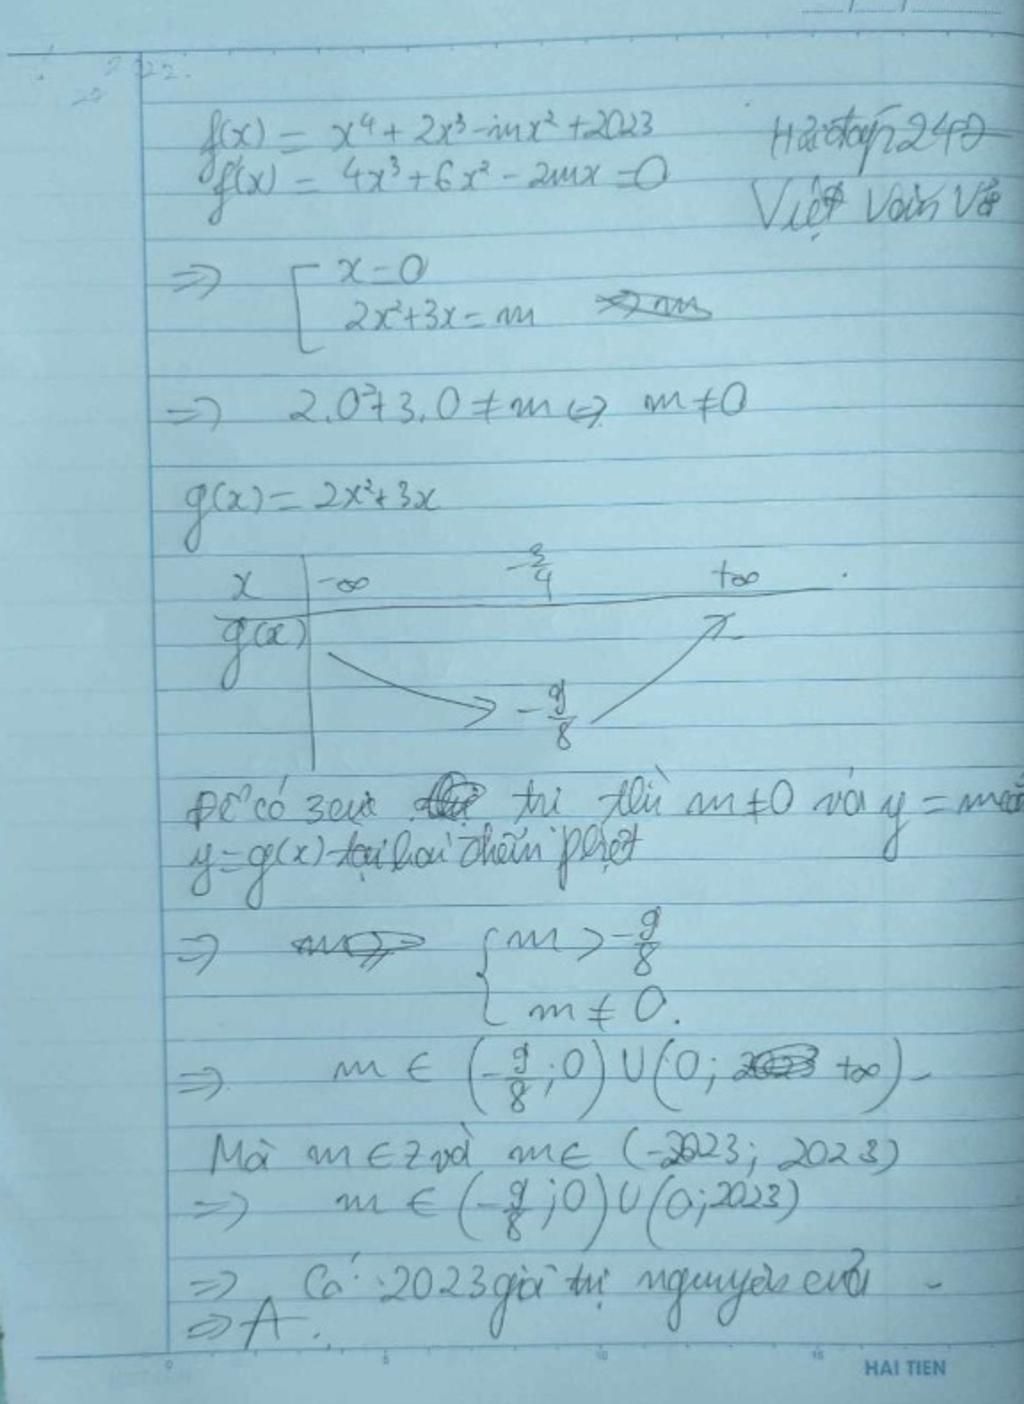 22.
f(x) = x⁴ + 2x³ - mx² + 2023
f'(x) = 4x³ + 6x² - 2mx = 0
Việt Văn Võ
=> [ x = 0
2x² + 3x = m
=> 2.0² + 3.0 ≠ m <=> m ≠ 0
g(x) = 2x² + 3x
x -∞ -3/4 +∞
g(x) -9/8
Để có 3 cực trị thì m ≠ 0 và y = m cắt
y = g(x) tại hai điểm phân biệt
=> { m > -9/8
m ≠ 0.
=> m ∈ (-9/8; 0) ∪ (0; +∞)
Mà m ∈ Z và m ∈ (-2023; 2023)
=> m ∈ (-9/8; 0) ∪ (0; 2023)
=> Có 2023 giá trị nguyên của
=> A.
0 5 10 15
HAI TIEN